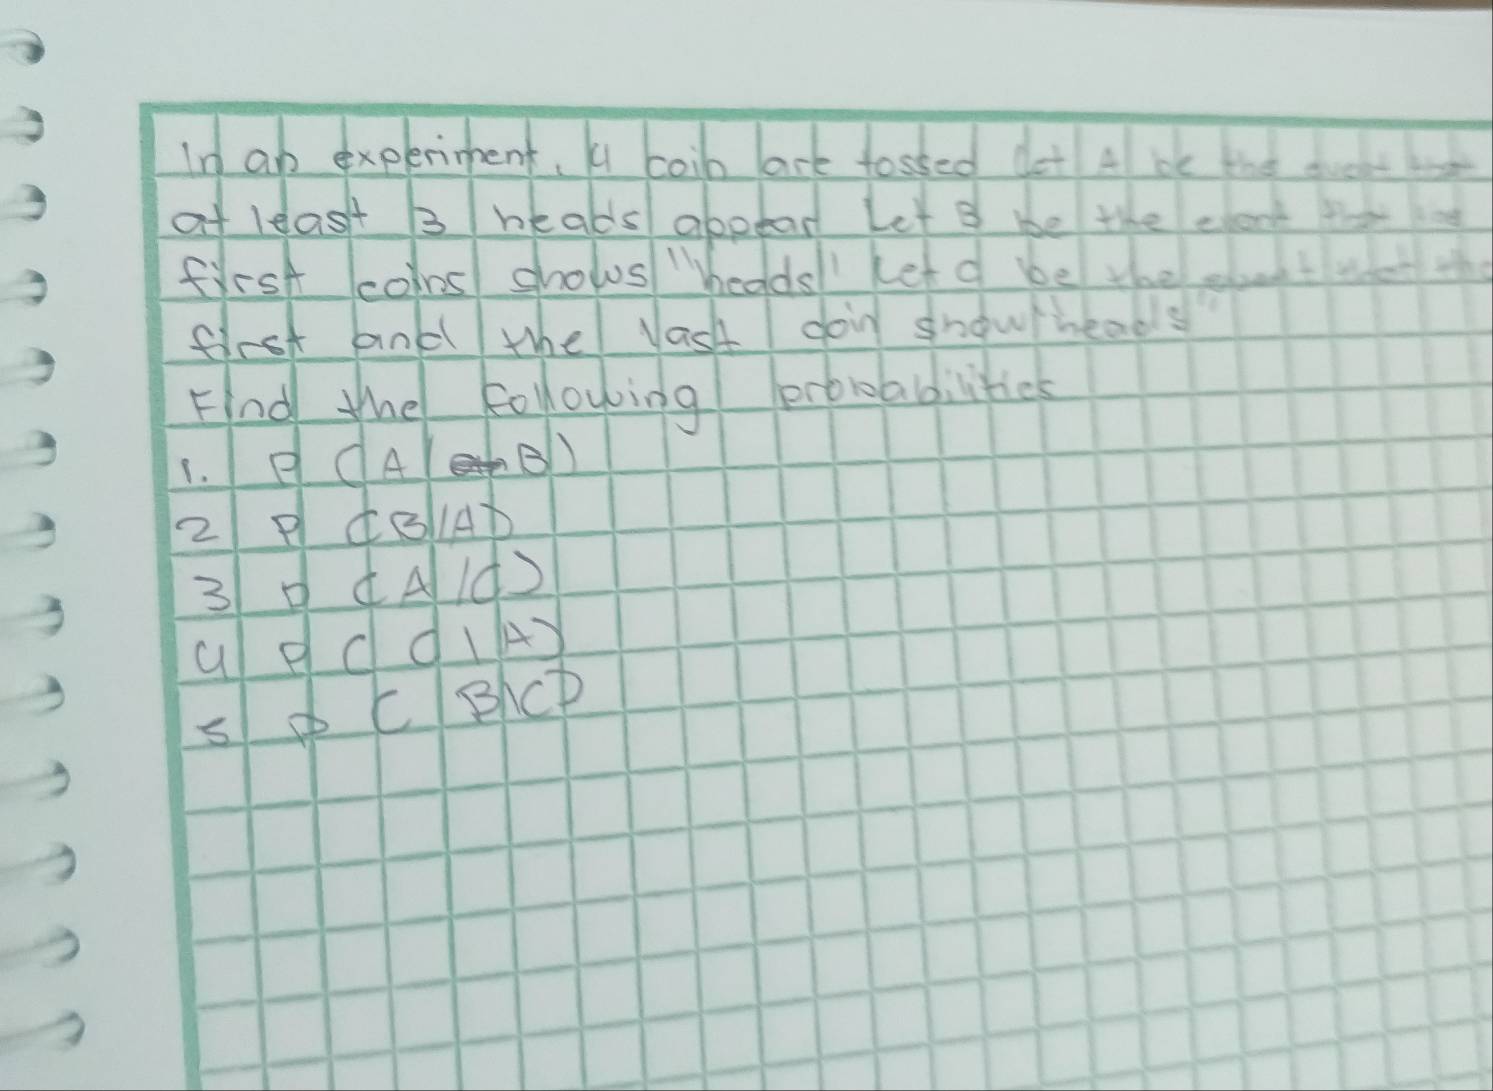 In an experiment, 4 coin are tossed Let A be the event that
at least 3 heads appear Let B be the event that the
first coins shows "heads" Let C be the event that the
first and the last coin show "heads"
Find the following probabilities
1. P (A | B)
2 P (B|A)
3 P (A|C)
4 P (C|A)
5 P (B|C)